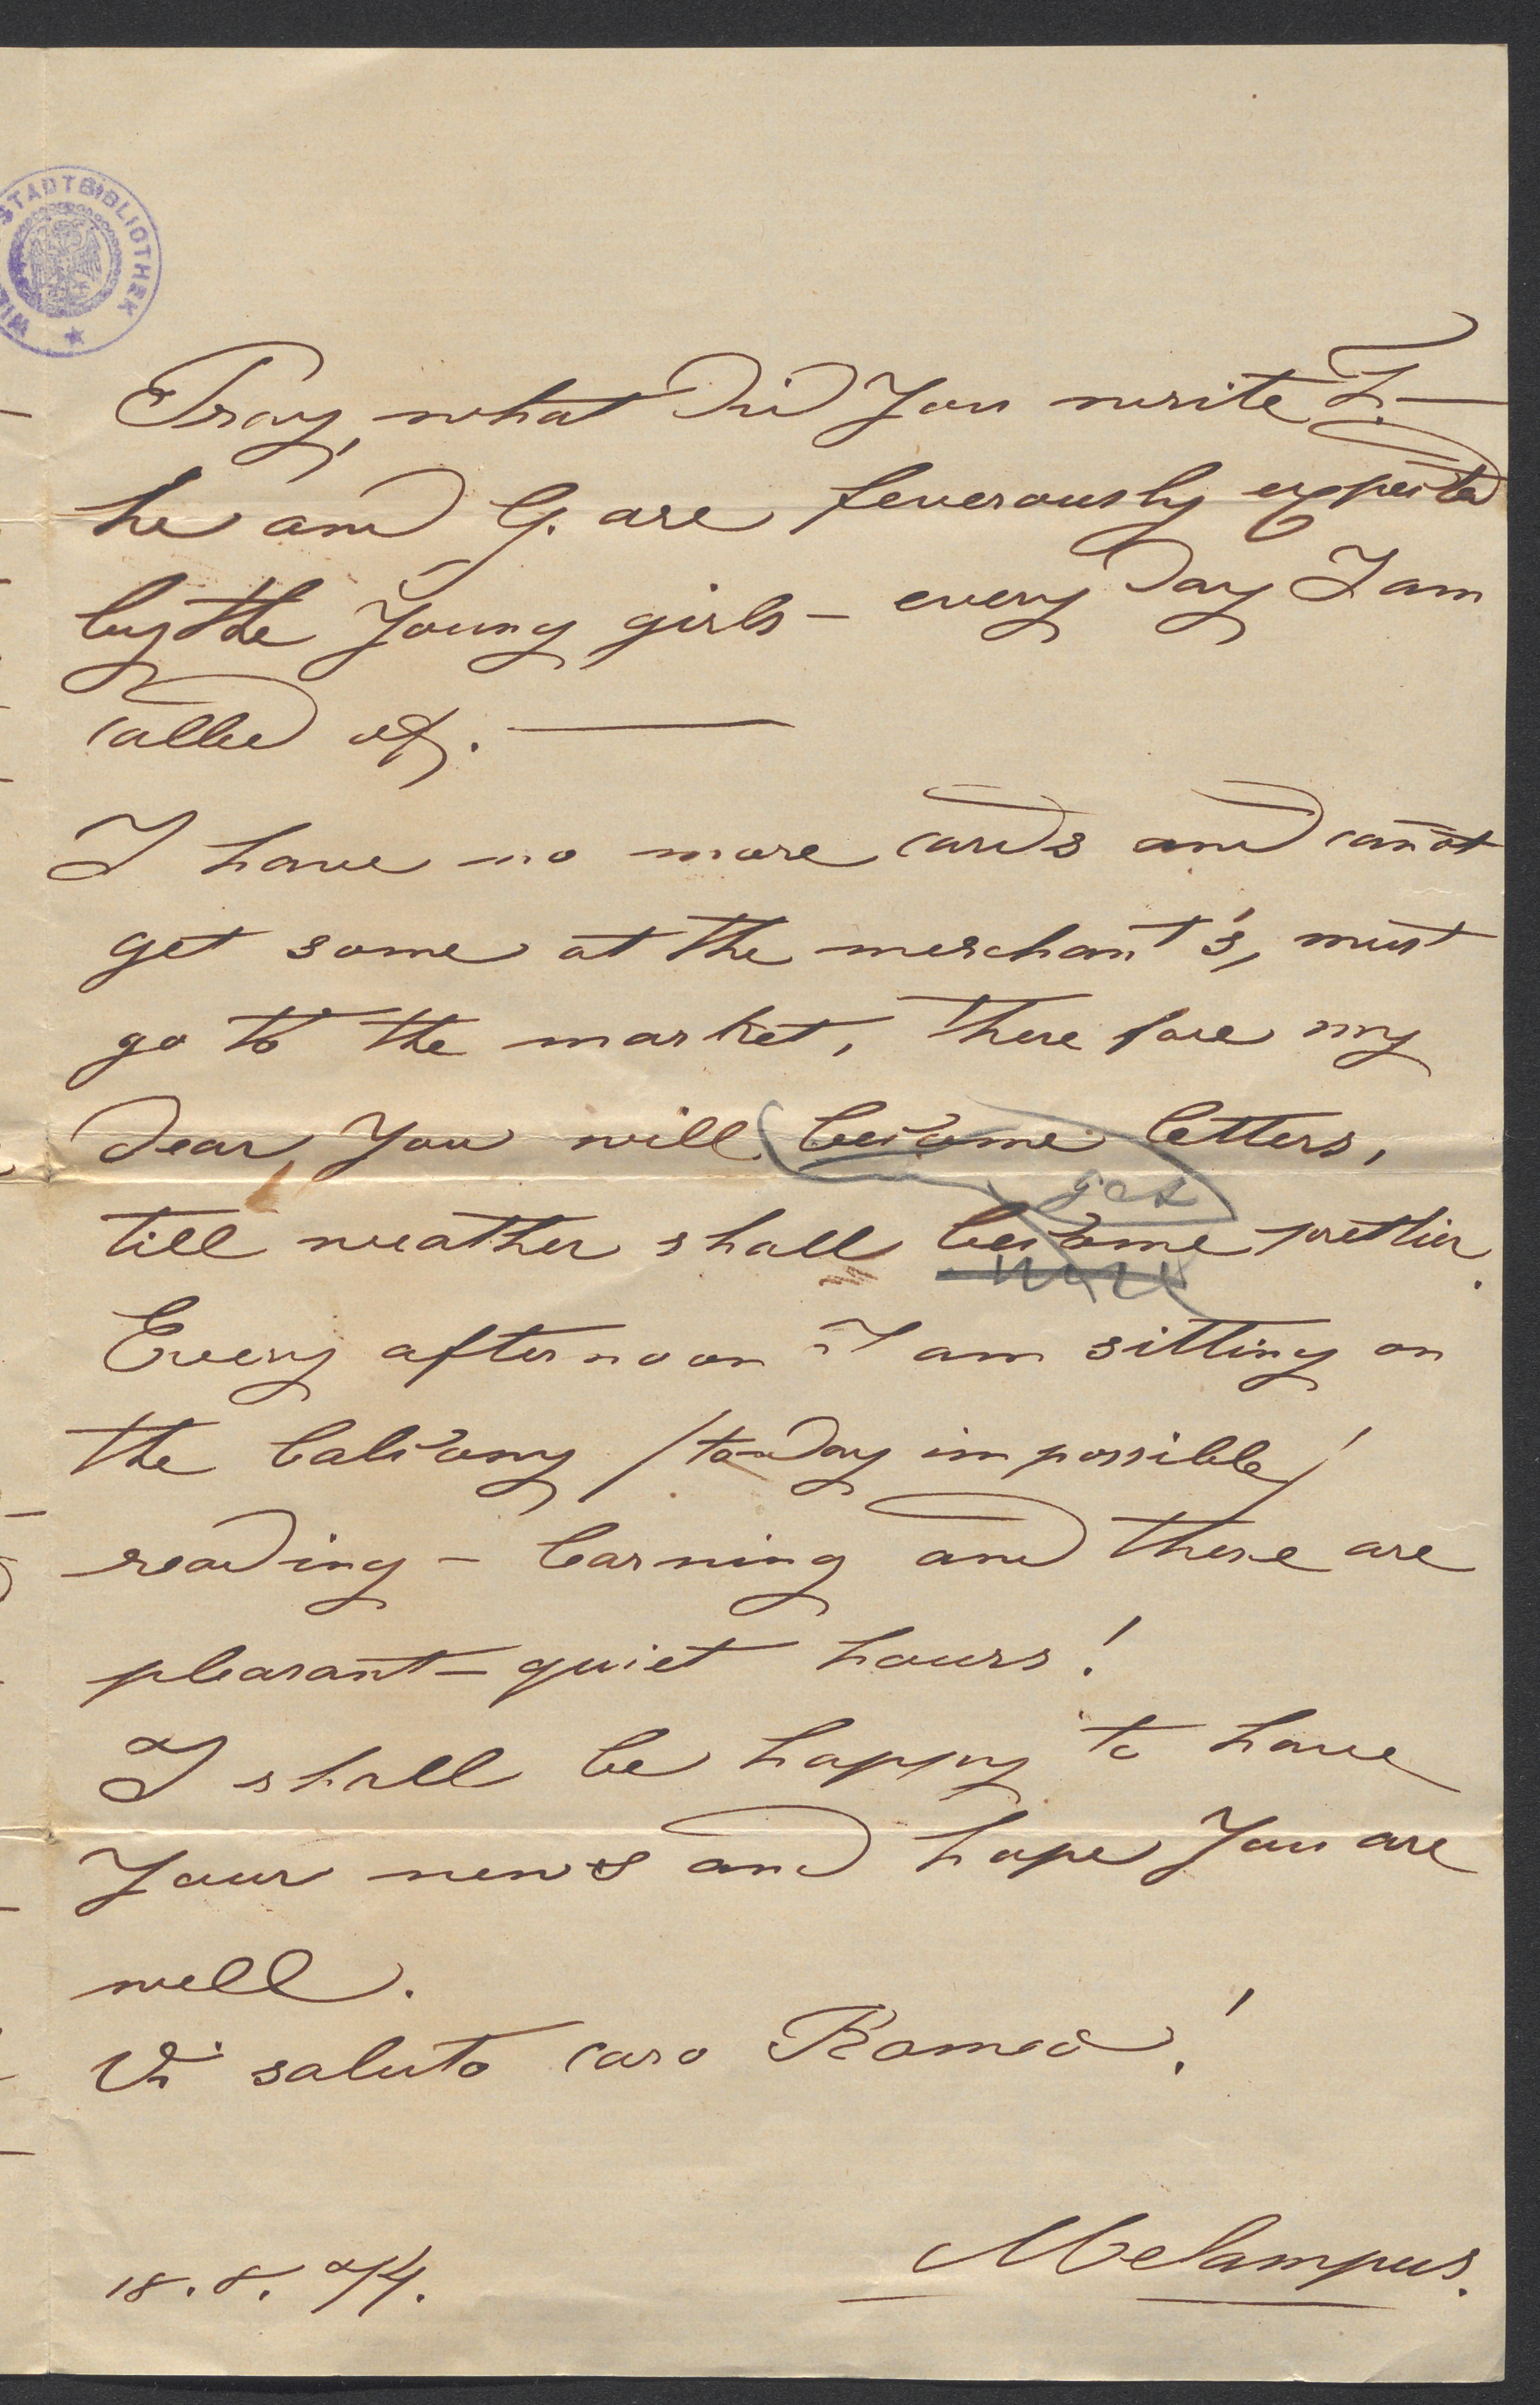 STADTBIBLIOTHEK
WIE
Pray, what did You write F. —
he and G. are feverously expected
by the Young girls – every day I am
called
I have no more cards and cannot
get some at the merchant's, must
go to the market, therefore my
dear, You will become letters,
get
till weather shall become prettier.
Every afternoon I am sitting on
the balcony /to-day impossible/
reading – learning and there are
pleasant – quiet hours!
I shall be happy to have
Your news and hope You are
well.
Vi saluto caro Romeo!
Melampus.
18. 8. 74.